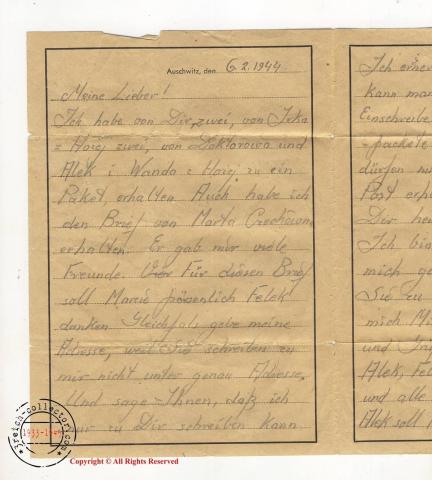 Auschwitz, den 6 2. 1944
Meine Lieber!
Ich habe von Dir, zwei, von Irka
z Hoig zwei, von Doktorowa und
Alek i Wanda z Hoig, zu ein
Paket, erhalten Auch habe ich
den Brief von Marta
erhalten. Er gab mir viele
Freunde. Für diesen Brief
soll Marcie persenlich Felek
danken Gleichfals gebe meine
Adresse, weil Sie schreiben zu
mir nicht unter genau Adresse.
Und sage Ihnen, daß ich
nur zu Dir schreiben Kann
Ich
Kann man
Einschreibe
-packete
dürfen
Post erh
Dir
Ich bin
mich
Sie zu
mich
und
Alek, Fel
und alle
Alek soll
3reich-collector.com
1933-1945
Copyright © All Rights Reserved